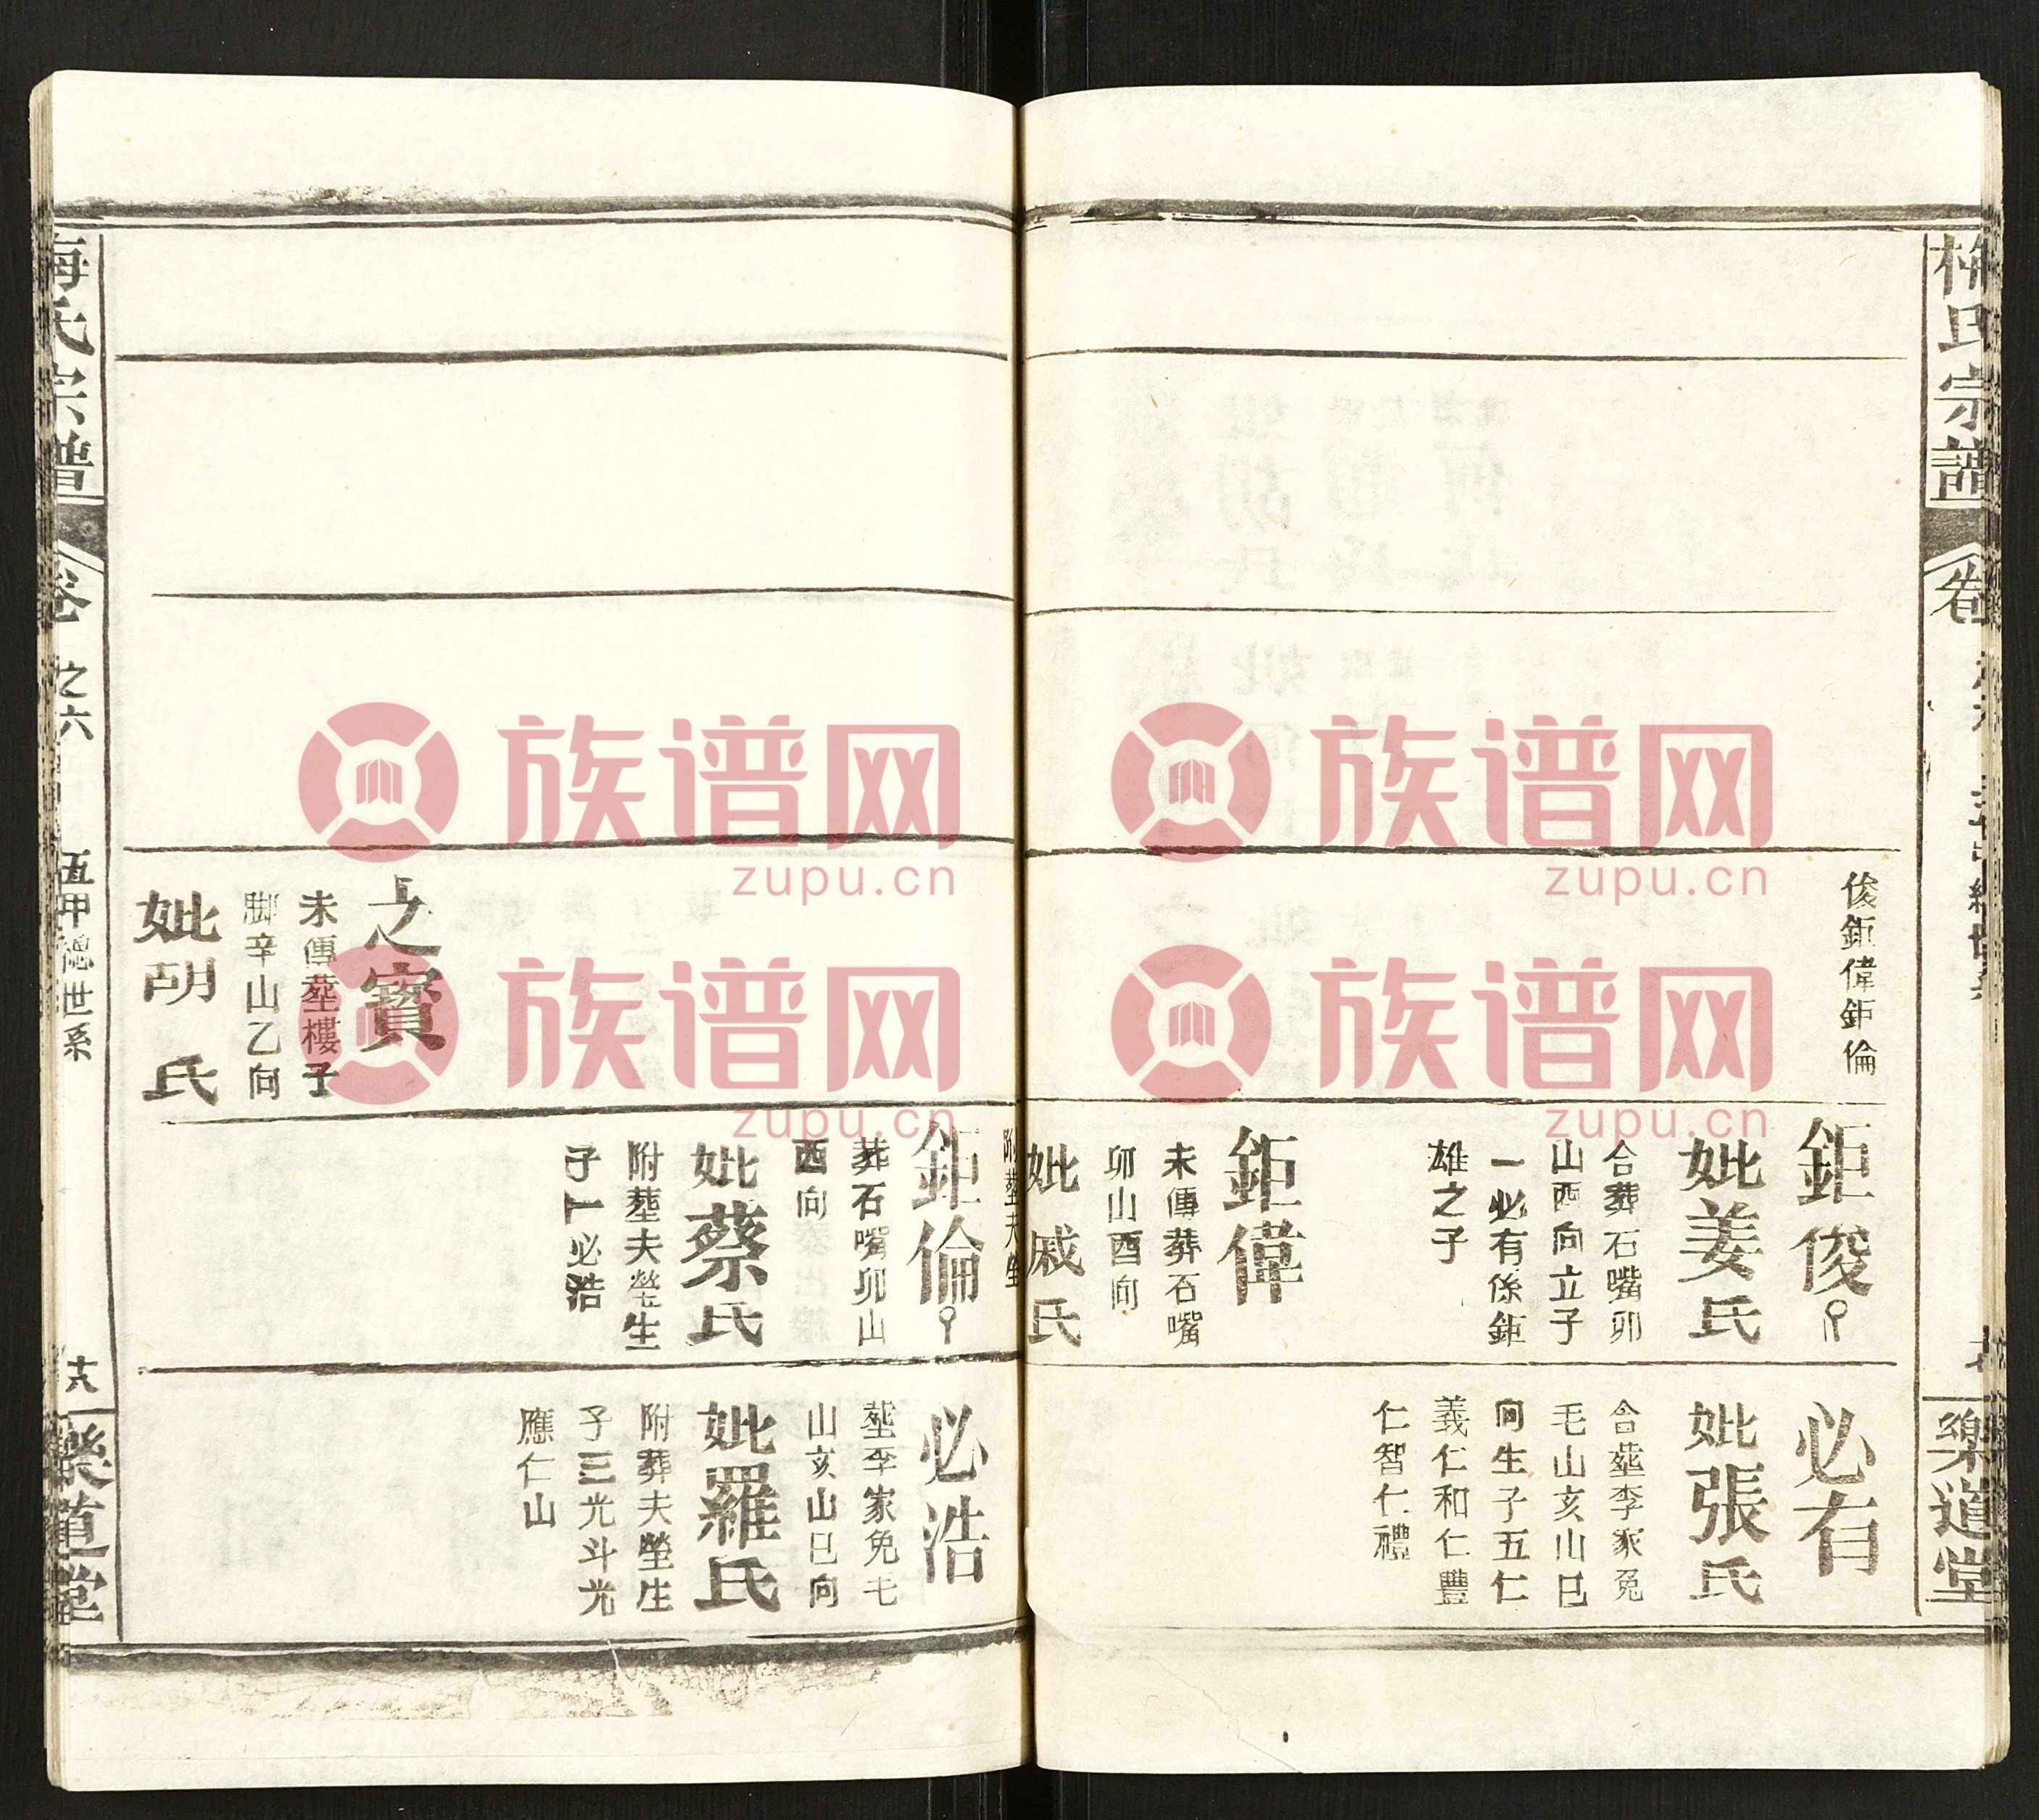 梅氏宗譜
卷
樂道堂
俊鉅偉鉅倫
鉅俊
妣姜氏
合葬石嘴卯
山酉向立子
一必有係鉅
雄之子
鉅偉
未傳葬石嘴
卯山酉向
妣戚氏
附塟夫塋
必有
妣張氏
合塟李家兔
毛山亥山巳
向生子五仁
義仁和仁豐
仁智仁禮
之寳
未傳塟樓子
脚辛山乙向
妣胡氏
鉅倫
葬石嘴卯山
酉向
妣蔡氏
附塟夫塋生
子一必浩
必浩
塟李家兔毛
山亥山巳向
妣羅氏
附葬夫塋生
子三光斗光
應仁山
梅氏宗譜
卷之六
五甲總世系
樂道堂
族谱网
zupu.cn
族谱网
zupu.cn
族谱网
zupu.cn
族谱网
zupu.cn